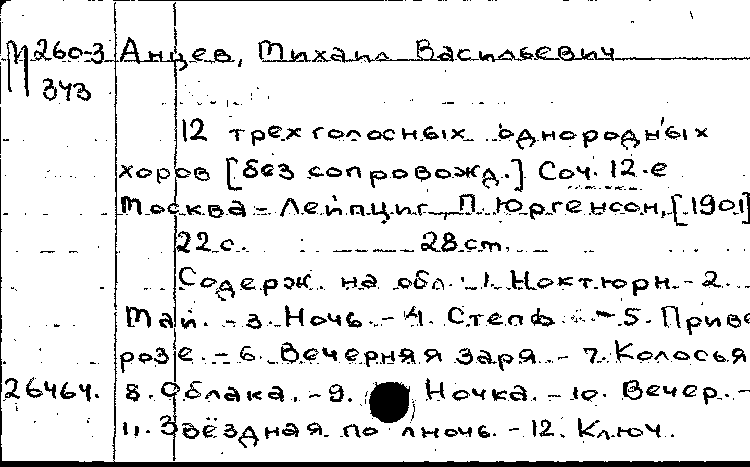 М 260-3 Анцев, Михаил Васильевич
343
12 трехголосных однородных
хоров [без сопровожд.] Соч. 12-е
Москва - Лейпциг, П. Юргенсон, [1901]
22 с. 28 см.
Содерж. на обл.: 1. Ноктюрн. - 2.
Май. - 3. Ночь. - 4. Степь. - 5. Приве
розе. - 6. Вечерняя заря. - 7. Колосья
26464. 8. Облака. - 9. Ночка. - 10. Вечер. -
11. Звёздная полночь. - 12. Ключ.